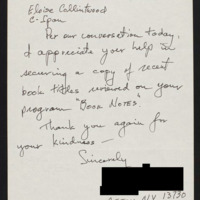 Eloise Collintwood
C-Span
Per our conversation today,
I appreciate your help in
securing a copy of recent
book titles reviewed on your
program "Book Notes".
Thank you again for
your kindness —
Sincerely
N.Y. 13130